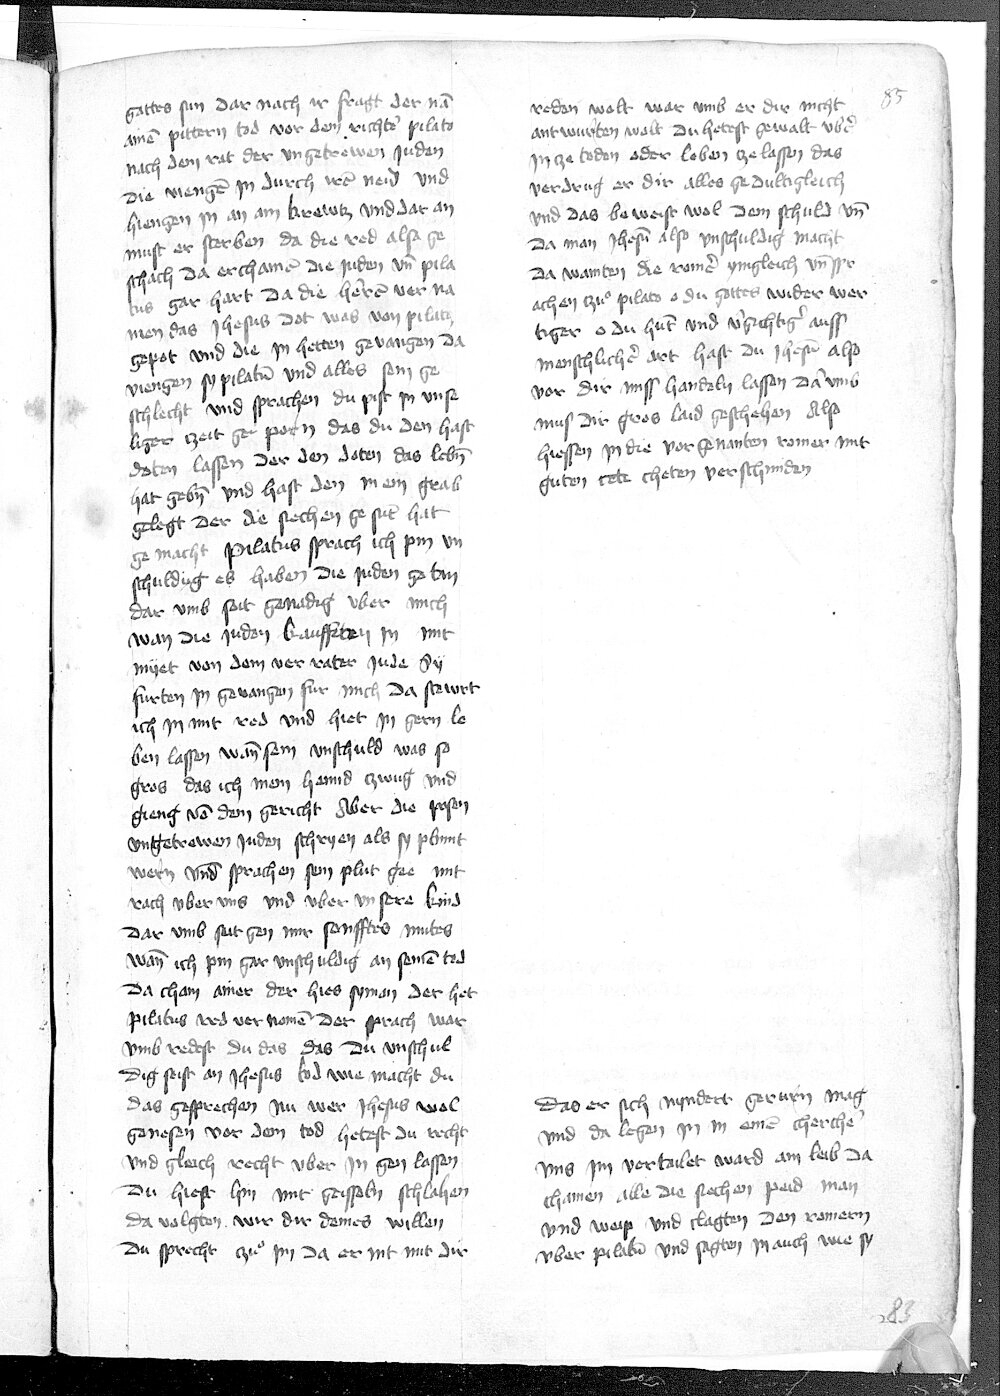 gottes sun dar nach ir fragt der nā
amē pittern tod vor dem richtē pilato
nach dem rat der ungetrewen juden
die viengē in durch irē neid und
hiengen in an am krewtz und dar an
must er sterben da die red also ge
schach da erchamē die juden vn̄ pila
tus gar hart da die hērē ver na
men das Jhesus dot was von pilatꝫ
gepot und die in hetten gevangen da
viengen sy pilatū und alles sein ge
schlecht und sprachen du pist in unse
liger czeit ge porn das du den hast
doten lassen der den doten das lebn̄
hat gebn̄ und hast den in ein grab
gelegt der die siechen ge sūt hat
ge macht Pilatus sprach ich pin un
schuldig es haben die juden getan
dar umb seit genadig uber mich
wan die juden kaufften in mit
miet von dem ver rater Jude Sy
furten in gevangen fur mich da stewrt
ich in mit red und hiet in gern le
ben lassen wan̄ sein unschuld was so
gros das ich mein hennd czwug und
gieng vō dem gericht Aber die posen
ungetrewen juden schryen als sy plimt
wern und sprachen sein plut gee mit
rach uber uns und uber unsere kind
Dar umb seit gen mir senfftes mutes
wan̄ ich pin gar unschuldig an seinē tod
Da cham ainer der hies symon der het
pilatus red ver nomē der sprach war
umb redest du das das du unschul
dig seist an Jhesus tod wie macht du
das gesprechen nu wer Jhesus wol
genesen vor dem tod hetest du recht
und gleich recht uber in gen lassen
Du hiest hin mit geisseln schlahen
da volgten wir dir deines willen
Du sprecht czuͦ im da er nit mit dir
85
reden wolt war umb er dir nicht
antwurten wolt du hetest gewalt vbē
in ze toden oder leben ze lassen das
verdrug er dir alles gedultigleich
und das beweist wol dem schuld vn̄
da man Jhesū also unschuldig macht
Da wainten die romē yngleich vn̄ spr
achen czuͦ pilato o du gottes wider wer
tiger o du hūt und vgichtigˀ auss
menschlichē art hast du Jhesū also
vor dir miss handeln lassen dar umb
mus dir gros laid geschehen Also
hiessen in die vorgenanten romer mit
guten cheten verschmiden
Das er sich nyndert gerurn mag
und da legen in in einē cherchē
uns im vertailet ward am leib da
chamen alle die siechen peid man
und weip und clagten den romern
uber pilatū und sagten in auch wie sy
83